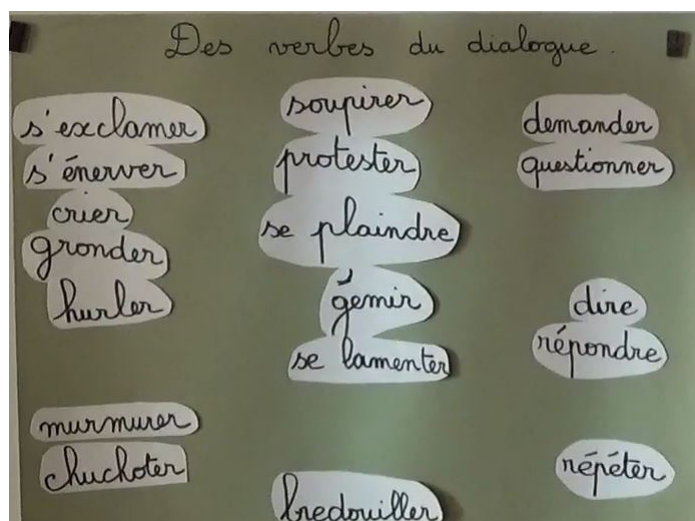 Des verbes du dialogue.
s'exclamer
s'énerver
crier
gronder
hurler
murmurer
chuchoter
soupirer
protester
se plaindre
gémir
se lamenter
bredouiller
demander
questionner
dire
répondre
répéter